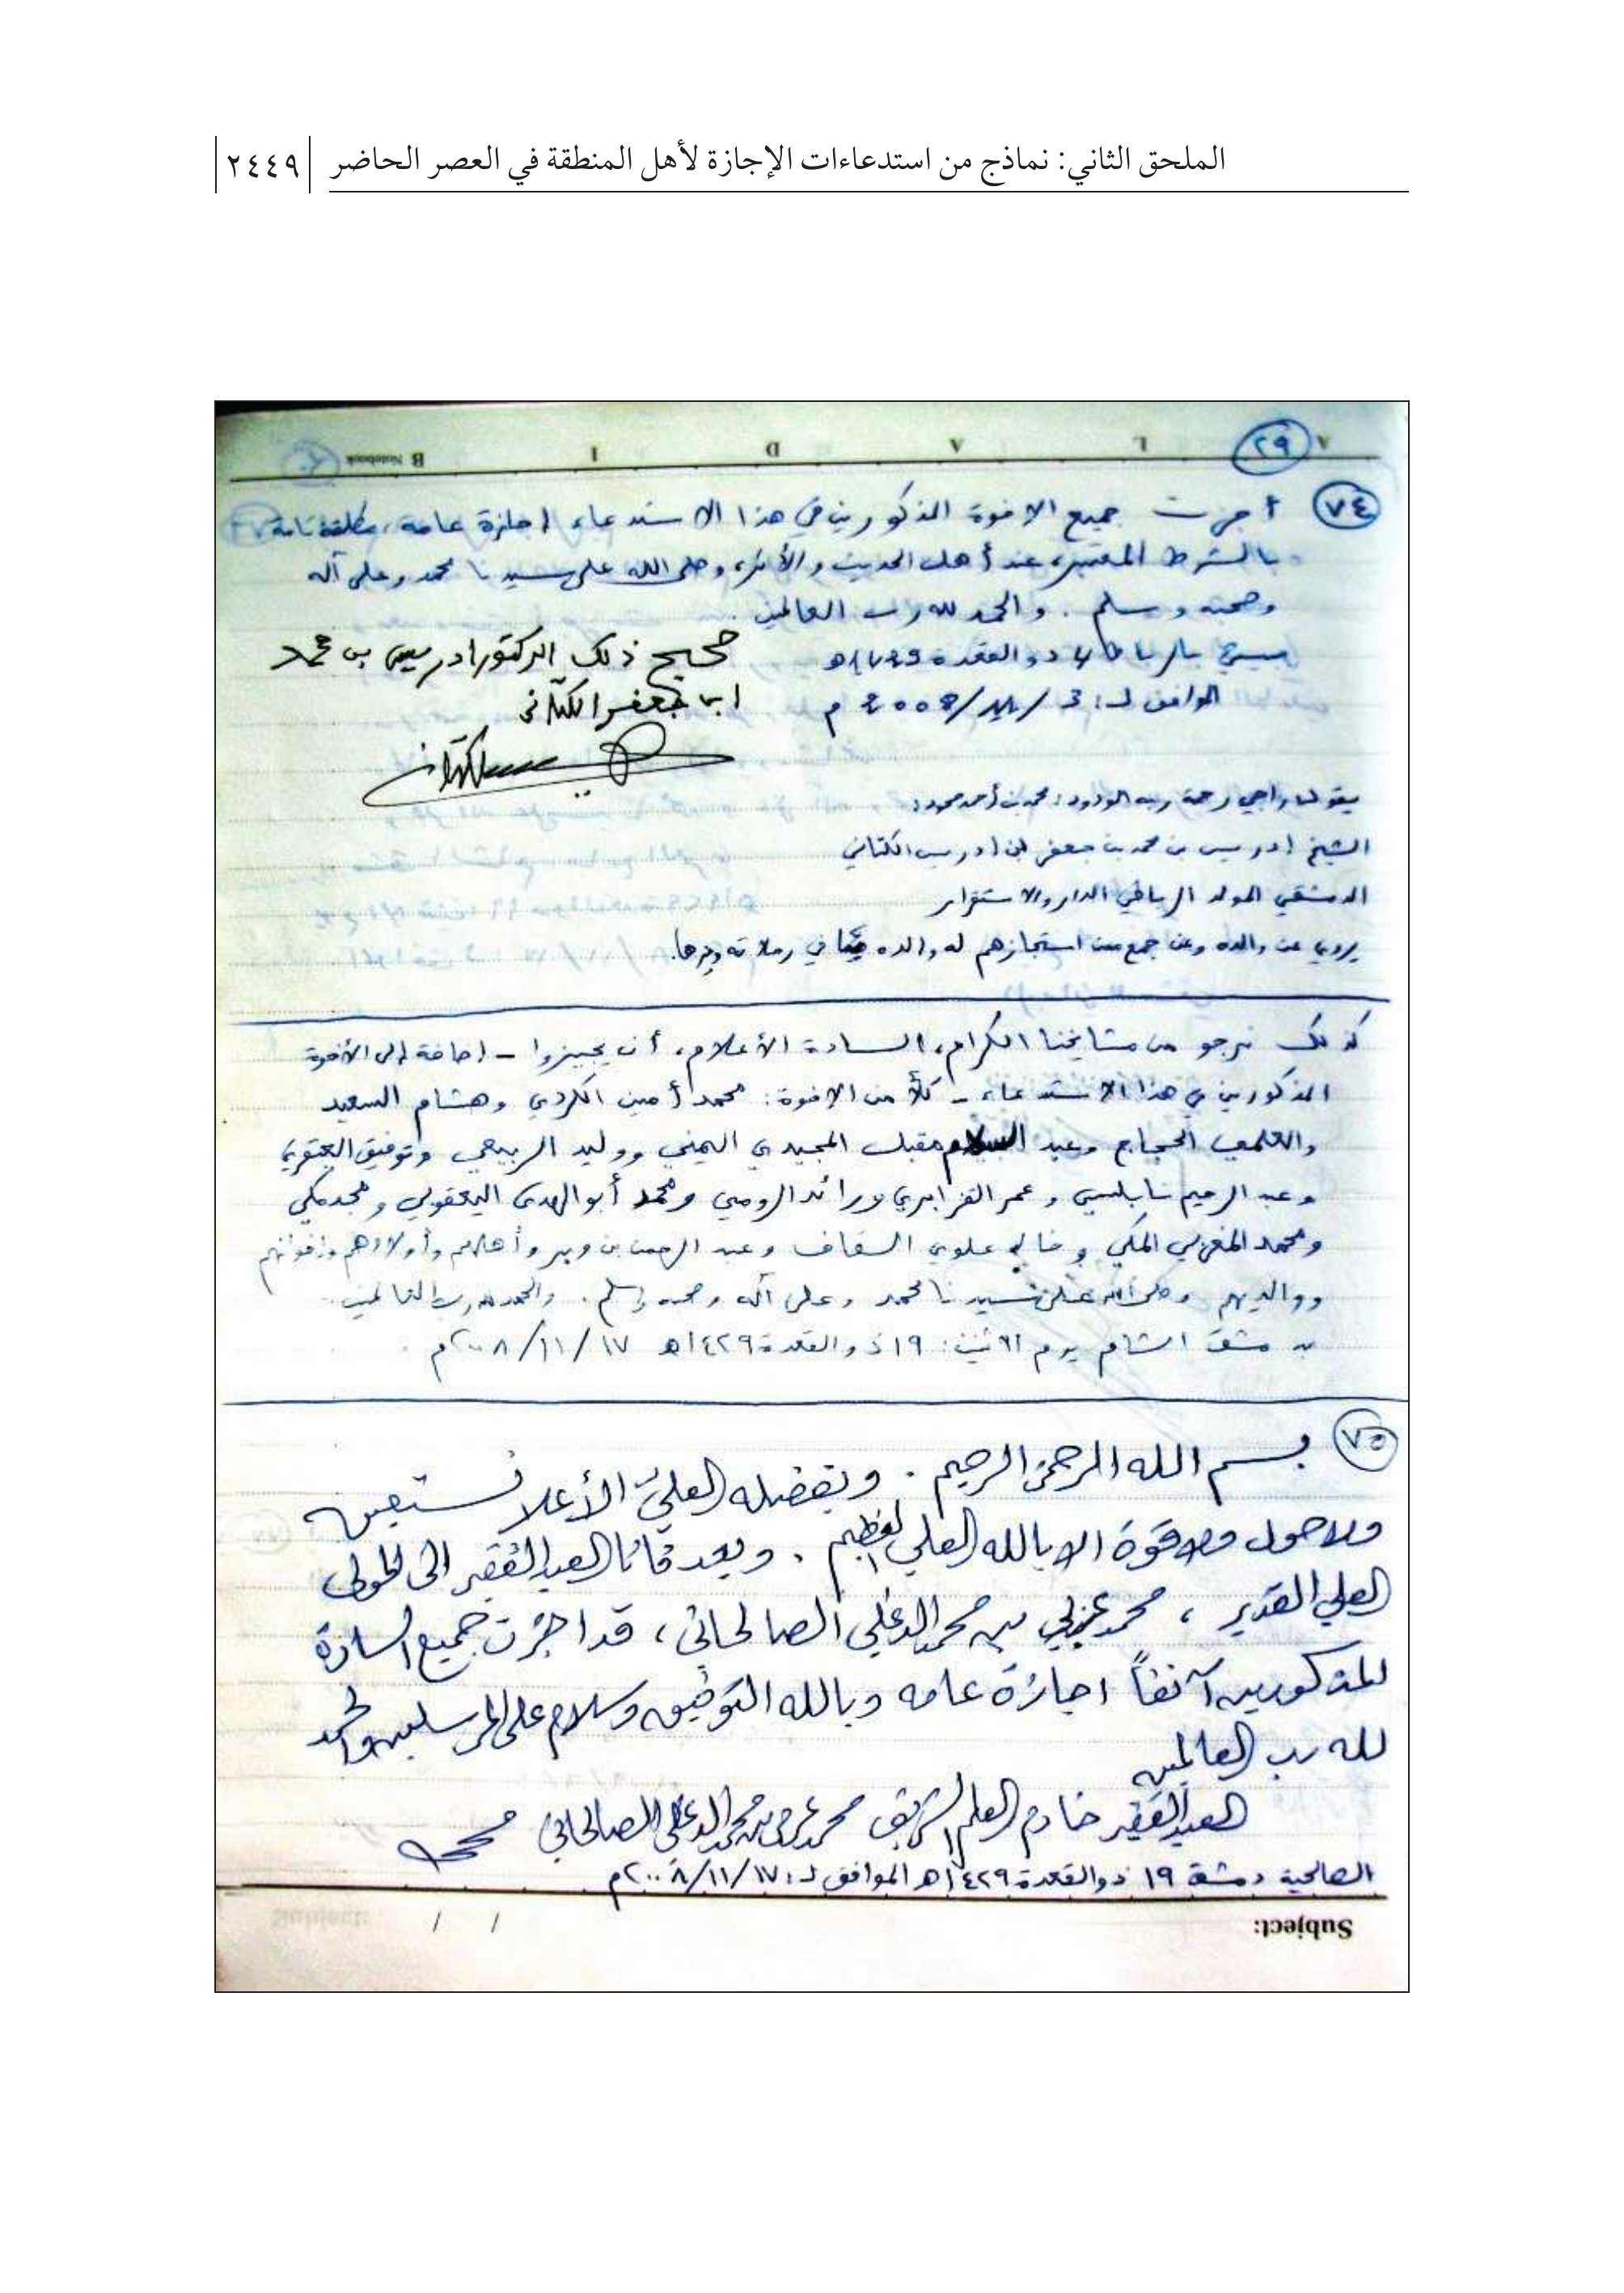 الملحق الثاني: نماذج من استدعاءات الإجازة لأهل المنطقة في العصر الحاضر ٢٤٤٩
A L A D I B Notebook
٢٩
٧٤ أجزت جميع الاخوة المذكورين في هذا الاستدعاء إجازة عامة، مطلقة تامة
بالشرط المعتبر، عند أهل الحديث والأثر، وصلى الله على سيدنا محمد وعلى آله
وصحبه وسلم. والحمد لله رب العالمين.
بالرباط ذو القعدة
الموافق لـ: م
صحيح ذلك الدكتور ادريس بن محمد
ابن جعفر الكتاني
يقول راجي رحمة ربه الودود: محمد بن أحمد محمود:
الشيخ إدريس بن محمد بن جعفر ابن إدريس الكتاني
الدمشقي المولد الرباطي الدار والاستقرار
يروي عن والده وعن جمع ممن استجازهم له والده في رحلاته وغيرها.
كذلك نرجو من مشايخنا الكرام، السادة الأعلام، أن يجيزوا - إضافة إلى الأخوة
المذكورين في هذا الاستدعاء - كلاً من الإخوة: محمد أمين الكردي وهشام السعيد
الحجاج وعبد السلام مقبل المجيدي اليمني ووليد الربيعي وتوفيق
وعبد الرحيم نابلسي وعمر ورائد الرومي ومحمد أبو الهدى اليعقوبي ومجد مكي
ومحمد المغربي المكي و علوي السقاف وعبد الرحمن بن وأهاليهم وأولادهم وإخوانهم
ووالديهم وصلى الله على سيدنا محمد وعلى آله وصحبه وسلم. والحمد لله رب العالمين.
دمشق الشام يوم الاثنين: ١٩ ذو القعدة ١٤٢٩هـ ١٧/١١/٢٠٠٨م.
٧٥ بسم الله الرحمن الرحيم. وبفضله العليّ الأعلا نستعين
ولاحول ولاقوة الا بالله العلي العظيم. وبعد فأنا العبد الفقير الى المولى
العلي القدير، محمد عربي بن محمد الدغلي الصالحاني، قد اجزت جميع السادة
المذكورين آنفاً اجازة عامه وبالله التوفيق وسلام على المرسلين والحمد
لله رب العالمين
العبد الفقير خادم العلم الشريف محمد عربي بن محمد الدغلي الصالحاني
الصالحية دمشق ١٩ ذو القعدة ١٤٢٩هـ الموافق لـ: ١٧/١١/٢٠٠٨م
Subject: / /